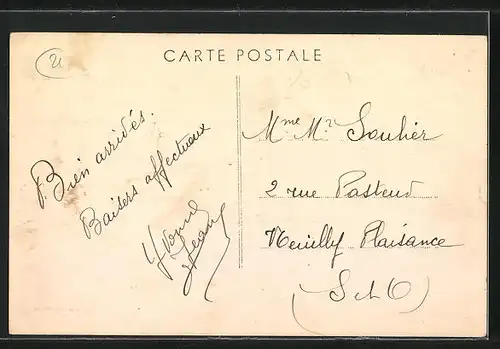 21
CARTE POSTALE
Bien arrivés.
Baisers affectueux
Yvonne
Jean
Mme Mr Soulier
2 rue Pasteur
Neuilly Plaisance
(S et O)